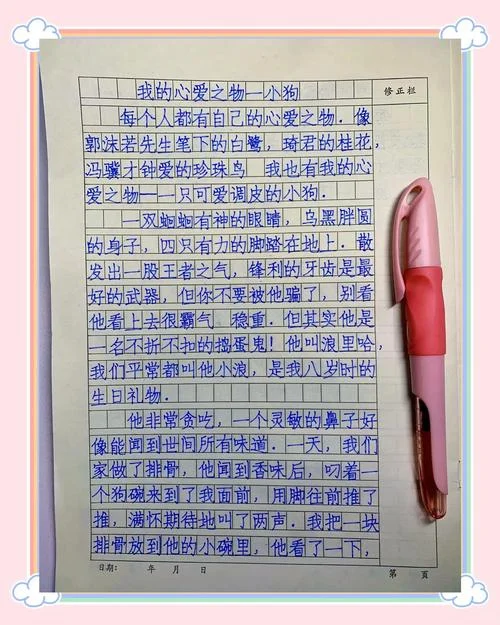 我的心爱之物一小狗
修正栏
每个人都有自己的心爱之物.像
郭沫若先生笔下的白鹭,琦君的桂花,
冯骥才钟爱的珍珠鸟 我也有我的心
爱之物一一只可爱调皮的小狗.
一双炯炯有神的眼睛,乌黑胖圆
的身子,四只有力的脚踏在地上.散
发出一股王者之气,锋利的牙齿是最
好的武器,但你不要被他骗了,别看
他看上去很霸气 稳重.但其实他是
一名不折不扣的捣蛋鬼!他叫浪里哈,
我们平常都叫他小浪,是我八岁时的
生日礼物.
他非常贪吃,一个灵敏的鼻子好
像能闻到世间所有味道.一天,我们
家做了排骨,他闻到香味后,叼着一
个狗碗来到了我面前,用脚往前推了
推,满怀期待地叫了两声.我把一块
排骨放到他的小碗里,他看了一下,
日期: 年 月 日 第 页